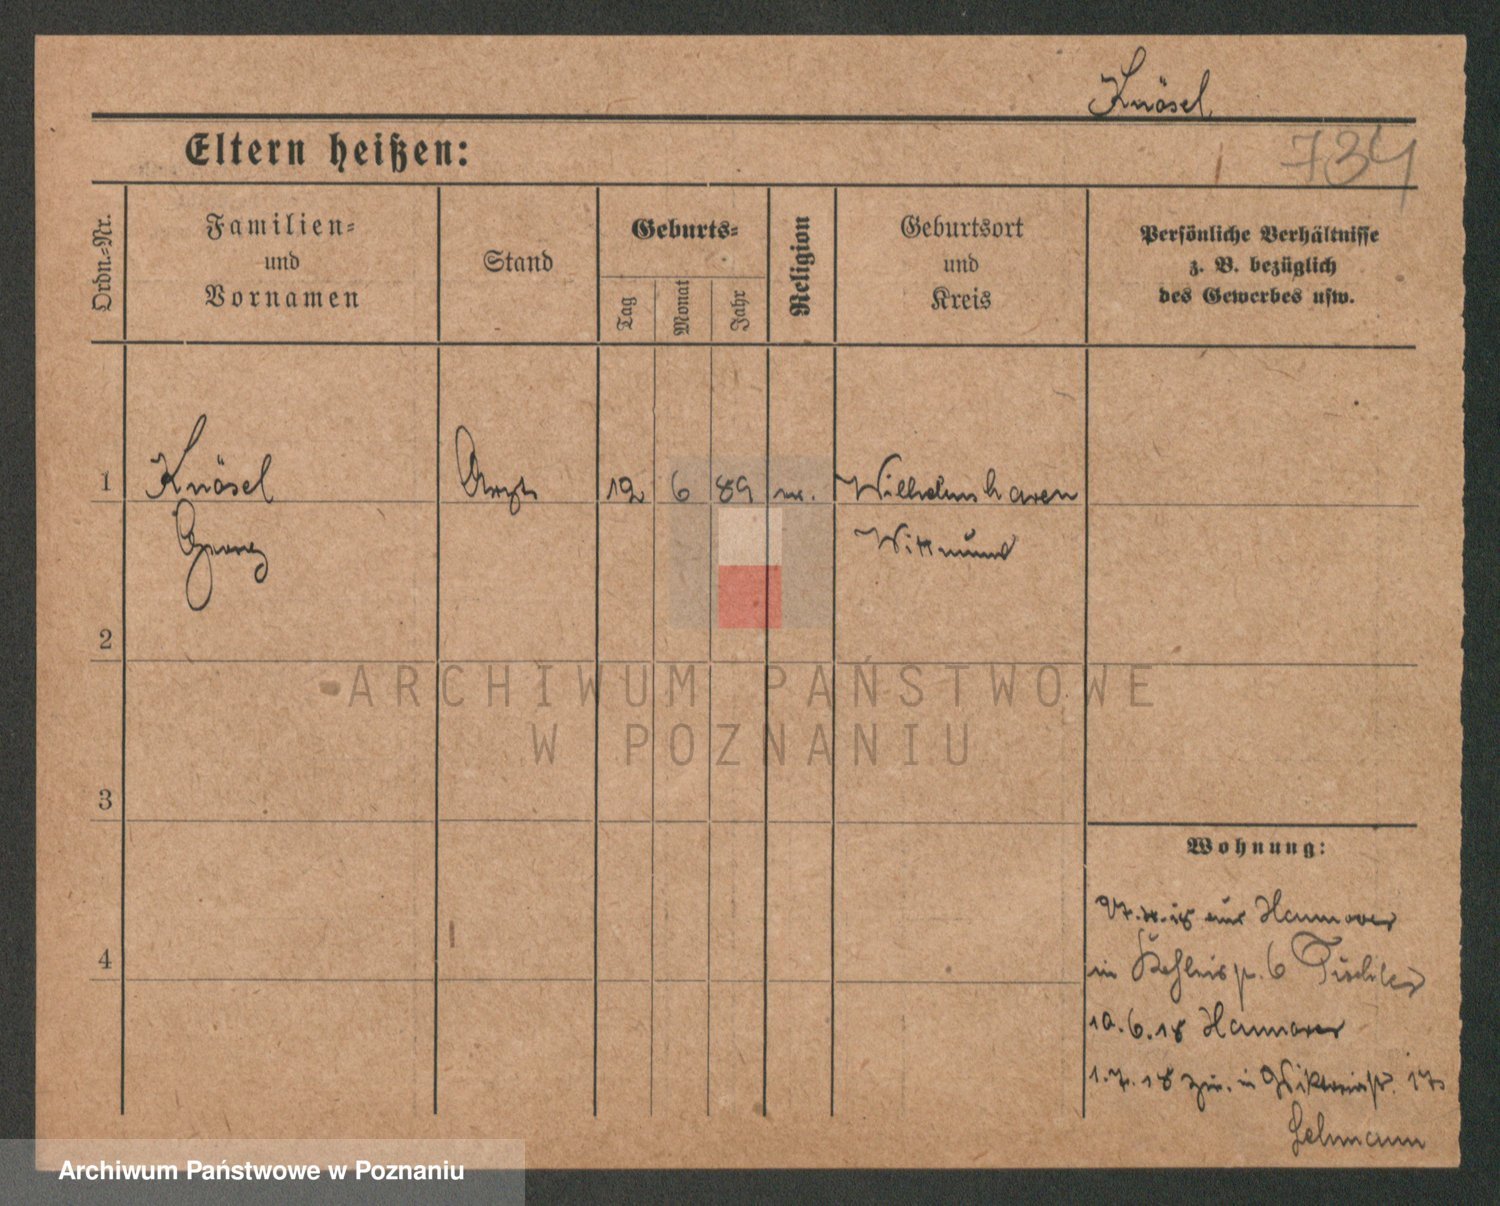 Knösel
Eltern heißen:
734
Ordn.-Nr.
Familien-
und
Vornamen
Stand
Geburts-
Tag
Monat
Jahr
Religion
Geburtsort
und
Kreis
Persönliche Verhältnisse
z. B. bezüglich
des Gewerbes usw.
1 Knösel Arzt 12 6 89 Wilhelmshaven
Georg Wittmund
2
ARCHIWUM PAŃSTWOWE
W POZNANIU
3
Wohnung:
aus Hannover
4
in 6 Tischler
10.6.18 Hannover
1.7.18 zur. in Viktoriastr. 17
Lehmann
Archiwum Państwowe w Poznaniu